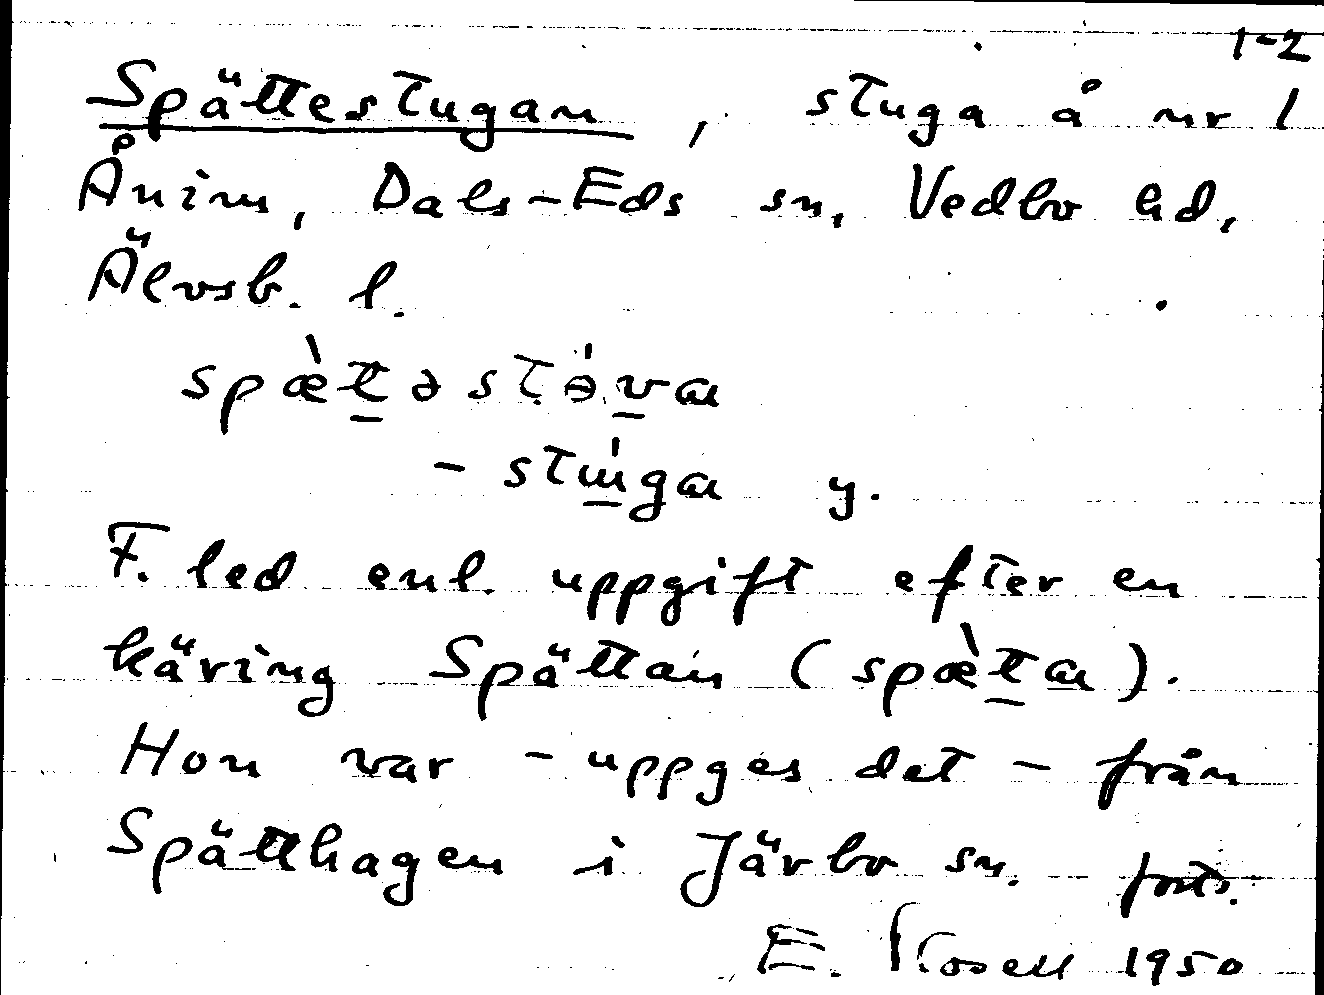 1-2
Spättestugan, stuga å nr 1
Ånim, Dals-Eds sn, Vedbo hd,
Älvsb. l.
spæ̀t̲əstə́v̲a
- stú̲ga y.
F. led enl. uppgift efter en
käring Spättan (spæ̀t̲a).
Hon var - uppges det - från
Spätthagen i Järbo sn. forts.
E. Rosell 1950